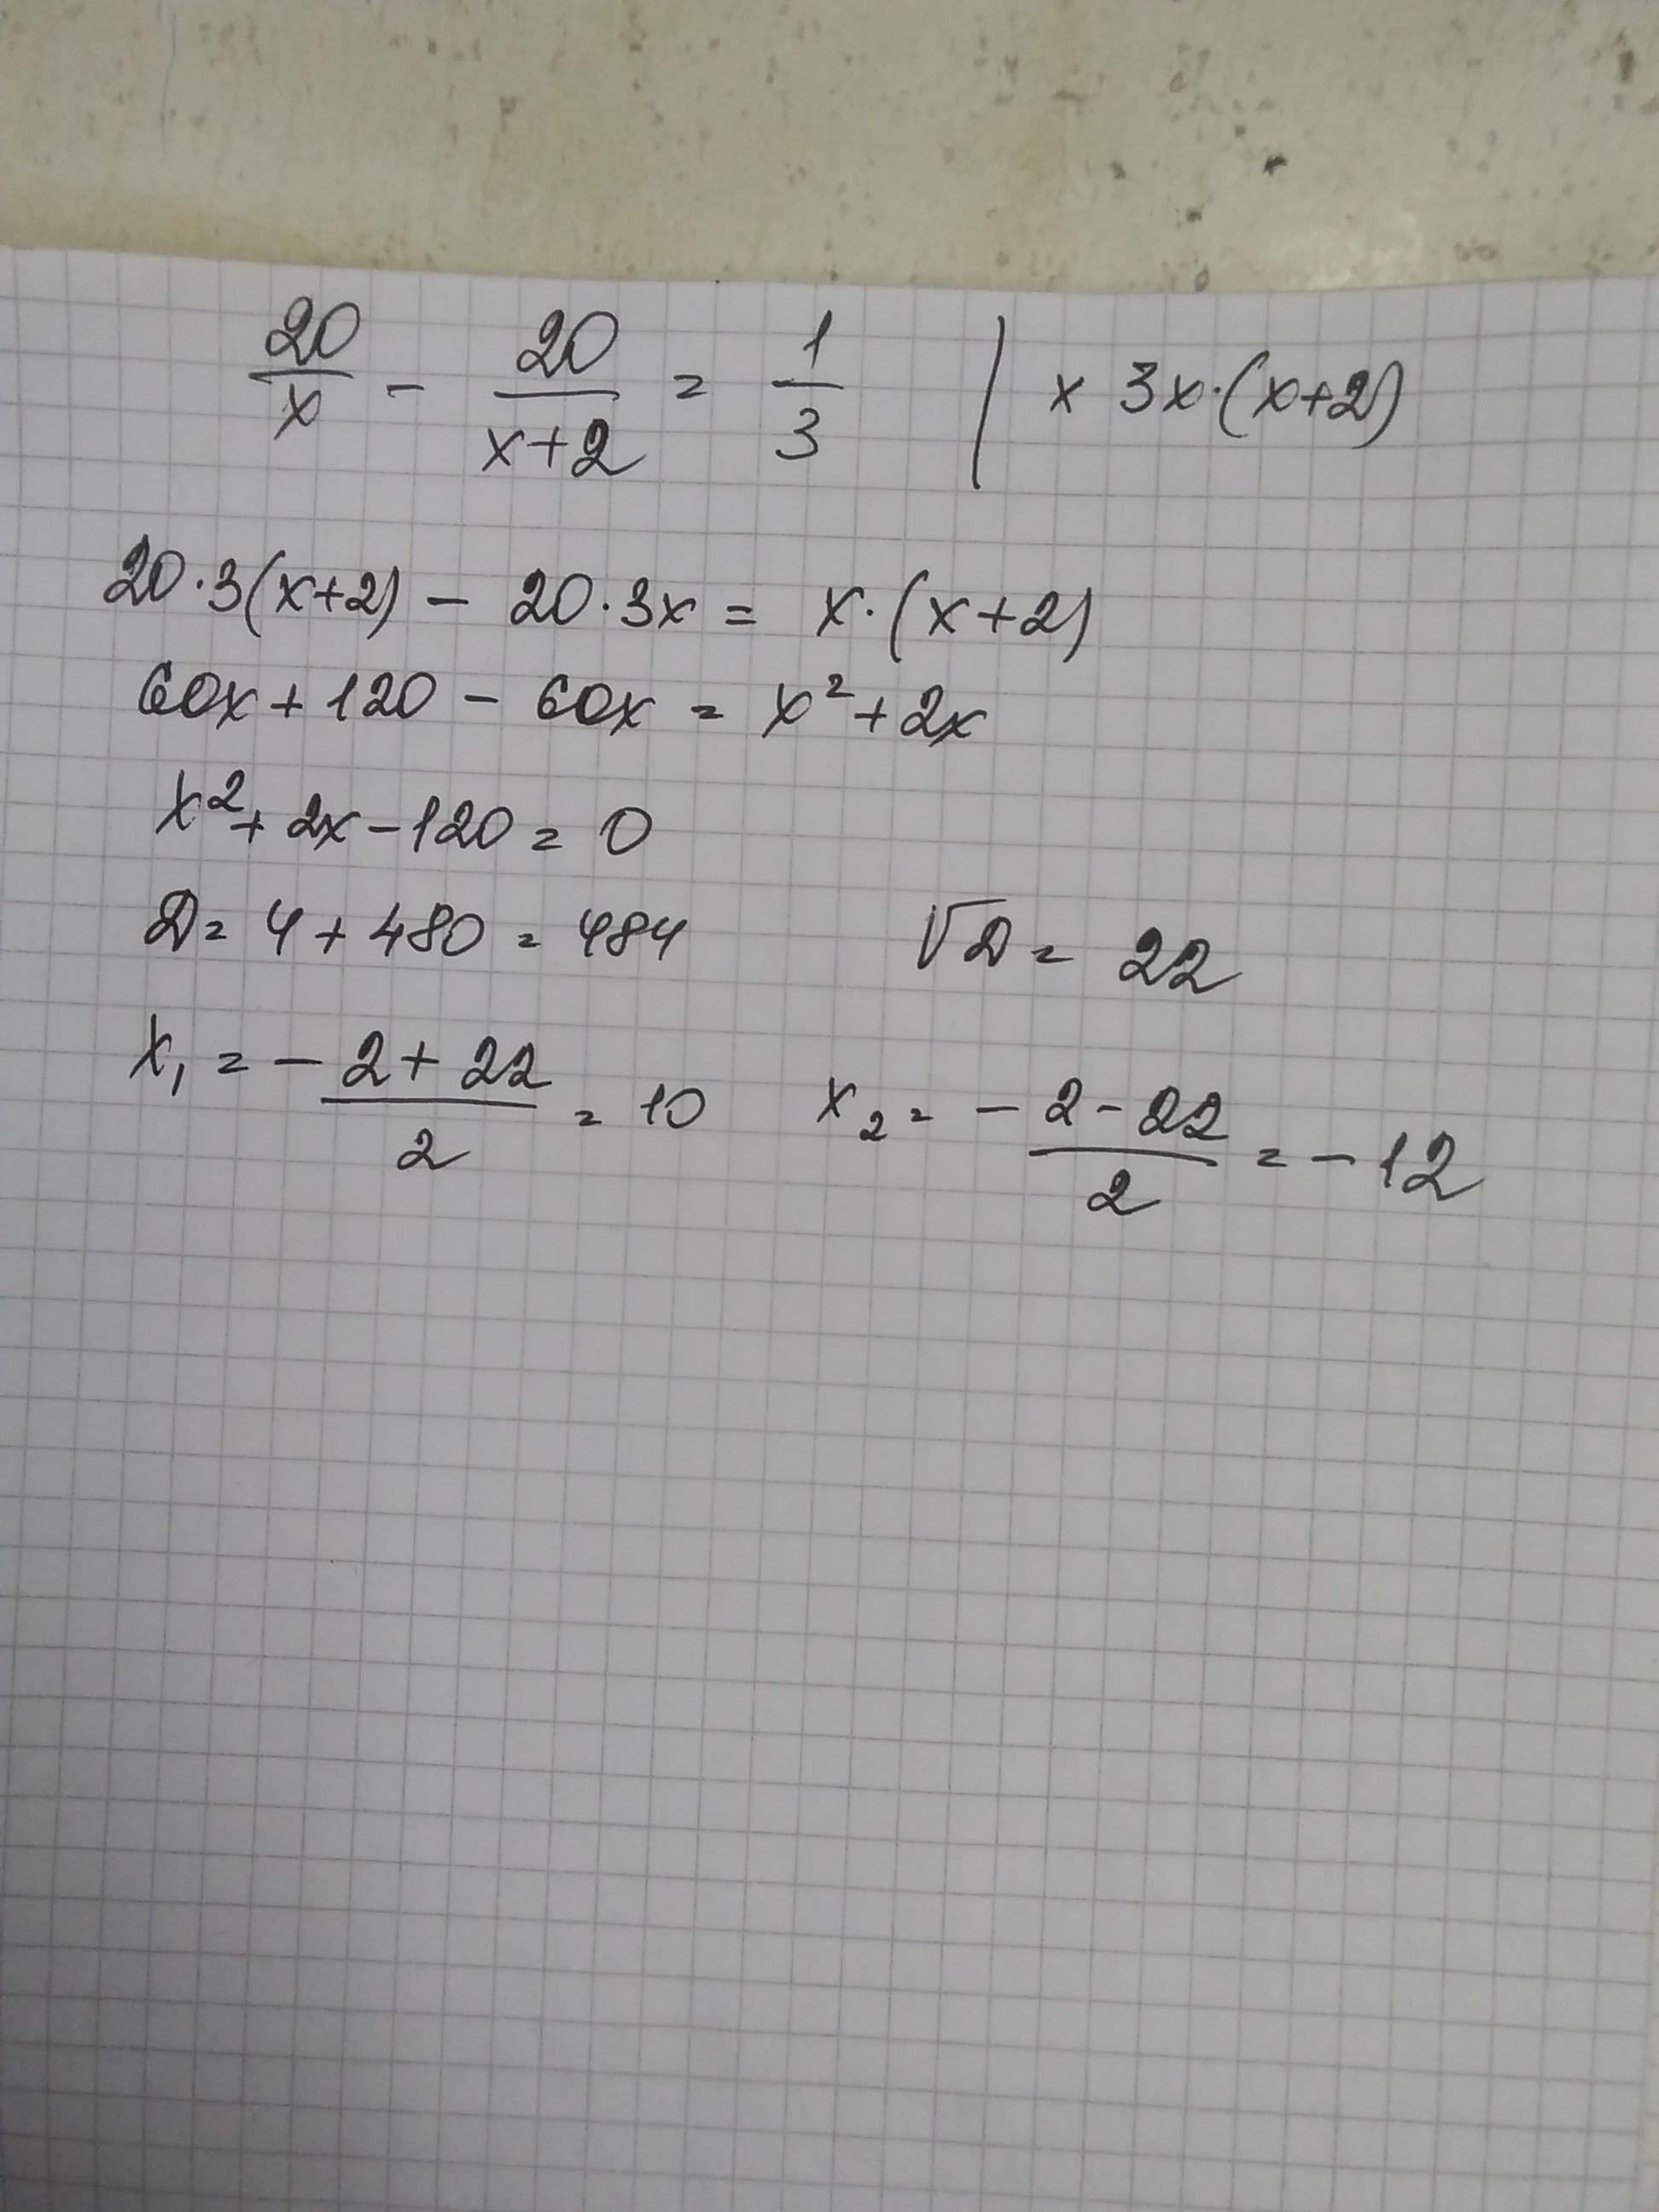 20/x - 20/(x+2) = 1/3 | × 3x·(x+2)
20·3(x+2) - 20·3x = x·(x+2)
60x + 120 - 60x = x² + 2x
x² + 2x - 120 = 0
D = 4 + 480 = 484 √D = 22
x₁ = (-2+22)/2 = 10 x₂ = (-2-22)/2 = -12